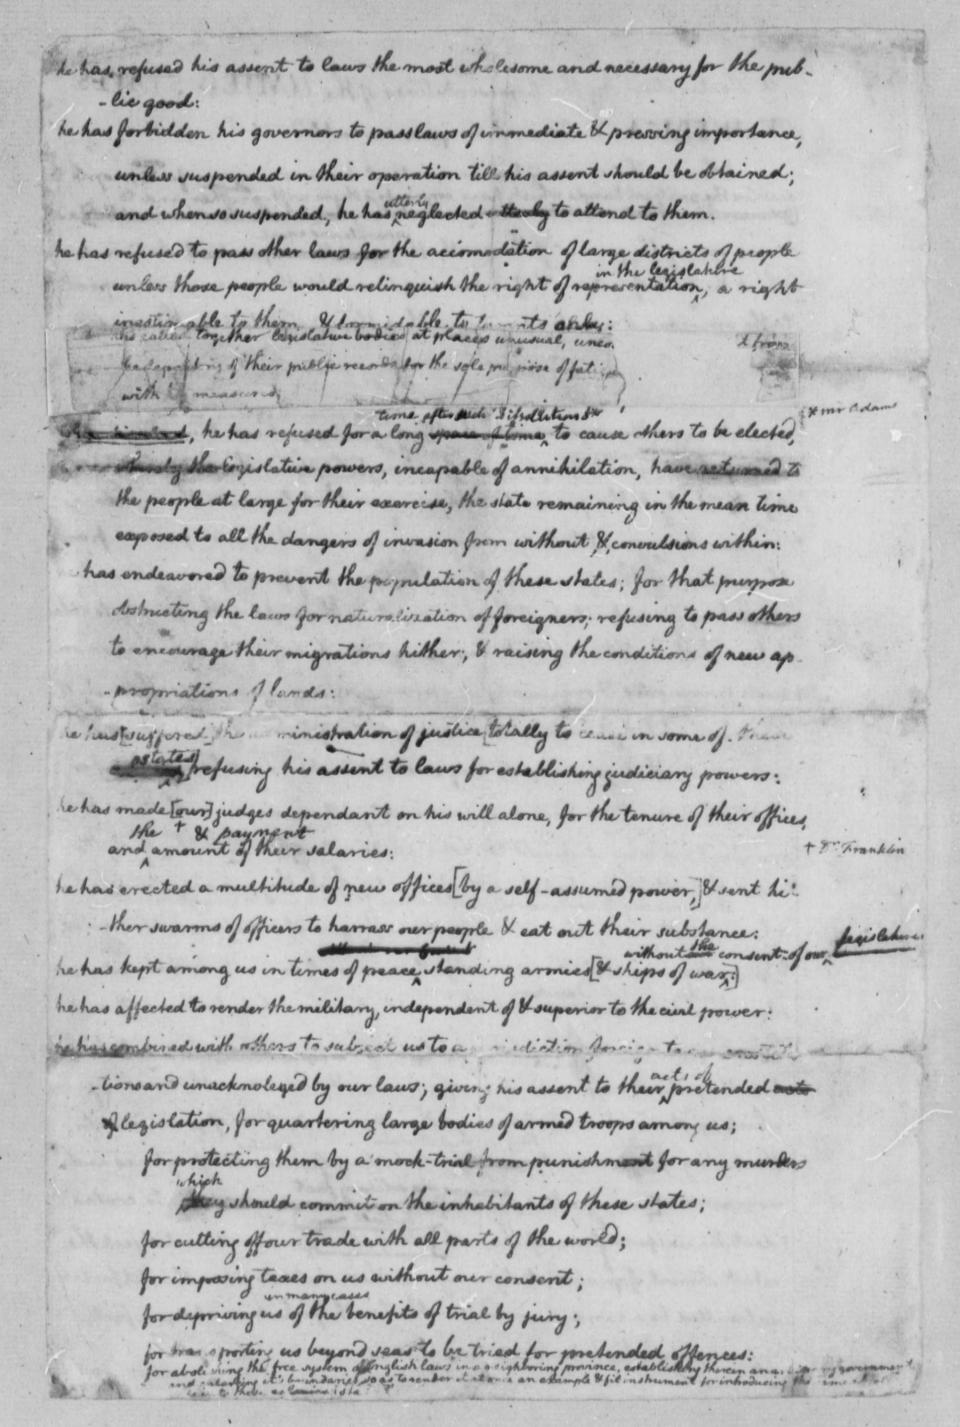 he has refused his assent to laws the most wholesome and necessary for the pub-
-lic good:
he has forbidden his governors to pass laws of immediate & pressing importance,
unless suspended in their operation till his assent should be obtained;
utterly
and when so suspended, he has neglected utterly to attend to them.
he has refused to pass other laws for the accomodation of large districts of people
in the legislature
unless those people would relinquish the right of representation, a right
inestimable to them & formidable to tyrants only:
called together legislative bodies at places unusual,
of their public records for the sole purpose of
with measures
time after such dissolutions
* mr Adams
he has refused for a long space of time to cause others to be elected,
whereby the legislative powers, incapable of annihilation, have returned to
the people at large for their exercise, the state remaining in the mean time
exposed to all the dangers of invasion from without & convulsions within:
has endeavored to prevent the population of these states; for that purpose
obstructing the laws for naturalization of foreigners; refusing to pass others
to encourage their migrations hither; & raising the conditions of new ap-
-propriations of lands:
he has [suffered] the administration of justice [totally to cease in some of these
states]
refusing his assent to laws for establishing judiciary powers:
he has made [our] judges dependant on his will alone, for the tenure of their offices,
the + & payment
and amount of their salaries:
+ Dr. Franklin
he has erected a multitude of new offices [by a self-assumed power,] & sent hi-
-ther swarms of officers to harrass our people & eat out their substance:
without the consent of our legislature
he has kept among us in times of peace standing armies [& ships of war:]
he has affected to render the military, independent of & superior to the civil power:
he has combined with others to subject us to a jurisdiction foreign to
-tions and unacknoleged by our laws; giving his assent to their acts of pretended acts
of legislation, for quartering large bodies of armed troops among us;
for protecting them by a mock-trial from punishment for any murders
which
they should commit on the inhabitants of these states;
for cutting off our trade with all parts of the world;
for imposing taxes on us without our consent;
in many cases
for depriving us of the benefits of trial by jury;
for transporting us beyond seas to be tried for pretended offences:
for abolishing the free system of English laws in a neighboring province, establishing therein an arbitrary government
and enlarging it's boundaries so as to render it at once an example & fit instrument for introducing the same